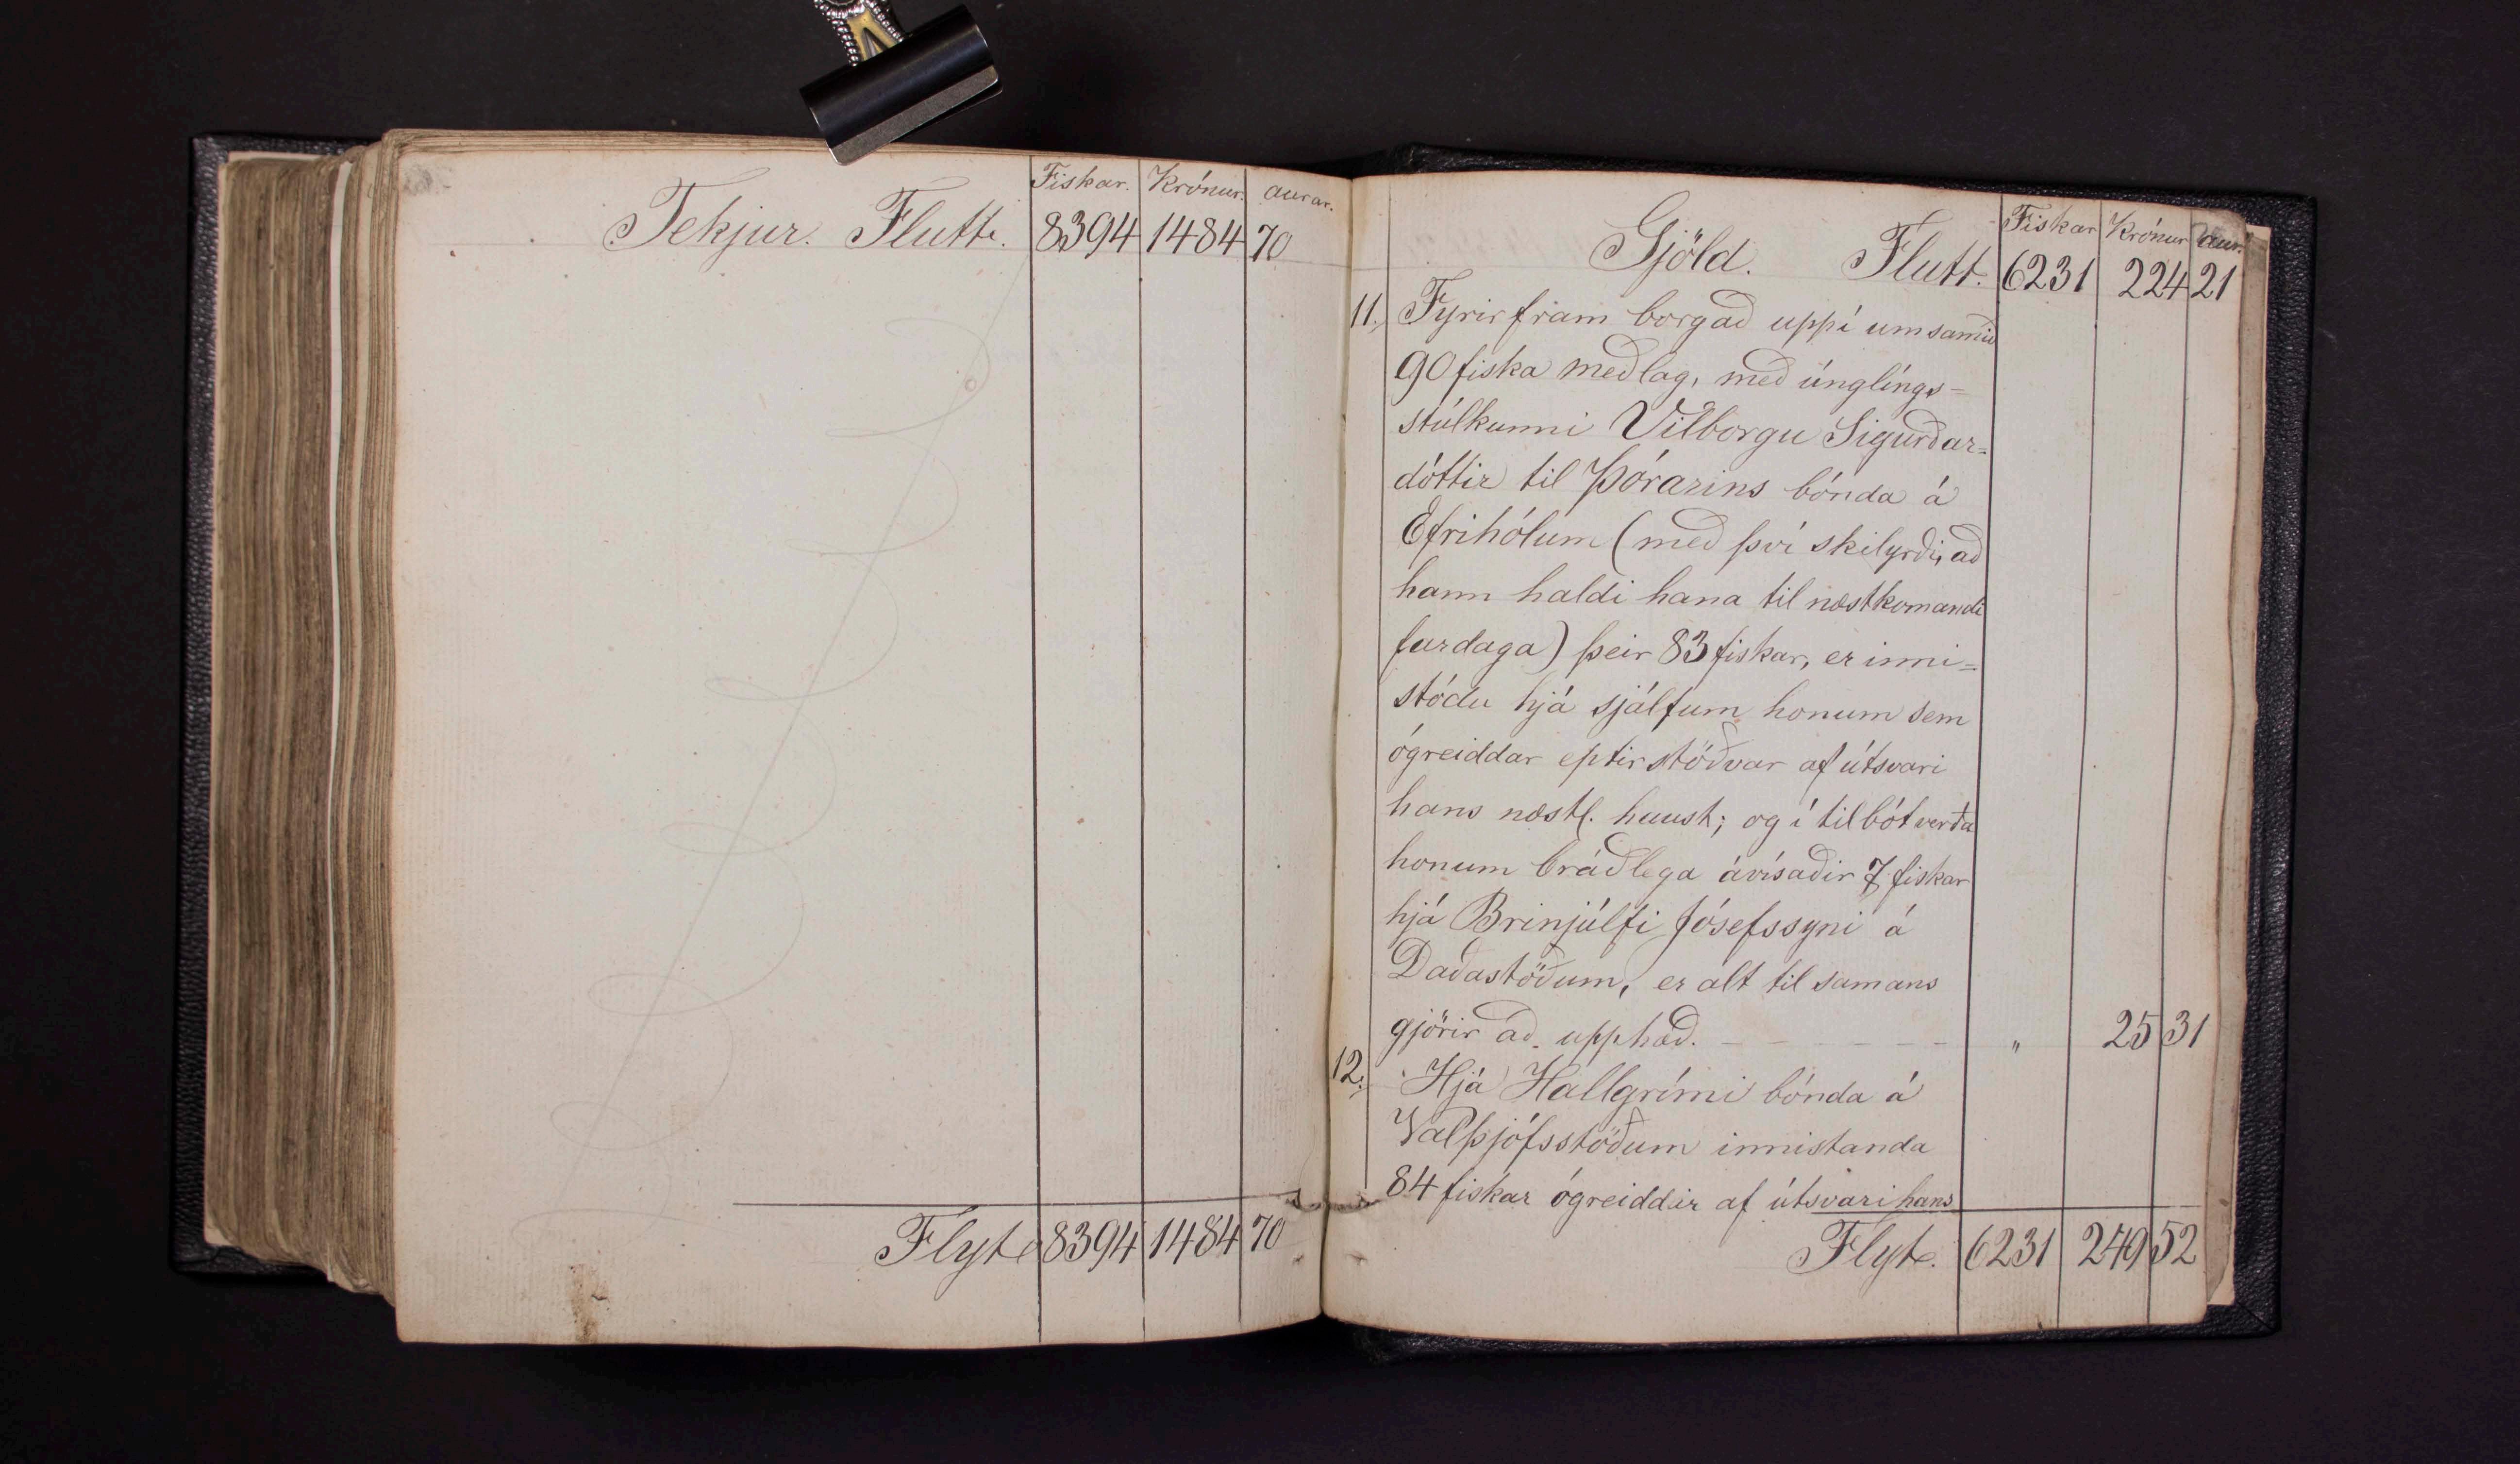 Fiskar. Krónur. aurar.
Tekjur. Flutt. 8394 1484 70
Flyt. 8394 1484 70
Fiskar Krónur aur.
Gjöld. Flutt. 6231 224 21
11., Fyrirfram borgað uppí umsamið
90 fiska meðlag, með únglíngs-
stúlkunni Vilborgu Sigurðar-
dóttir til Þórarins bónda á
Efrihólum (með því skilyrði, að
hann haldi hana til næstkomandi
fardaga) þeir 83 fiskar, er inni-
stóðu hjá sjálfum honum sem
ógreiddar eptirstöðvar af útsvari
hans næstl. haust; og í tilbót verða
honum bráðlega ávísaðir 7 fiskar
hjá Brinjúlfi Jósefssyni á
Daðastöðum, er alt til samans
gjörir að upphæð. - - - - - - „ 25 31
12., Hjá Hallgrími bónda á
Valþjófsstöðum innistanda
84 fiskar ógreiddir af útsvari hans
Flyt. 6231 249 52